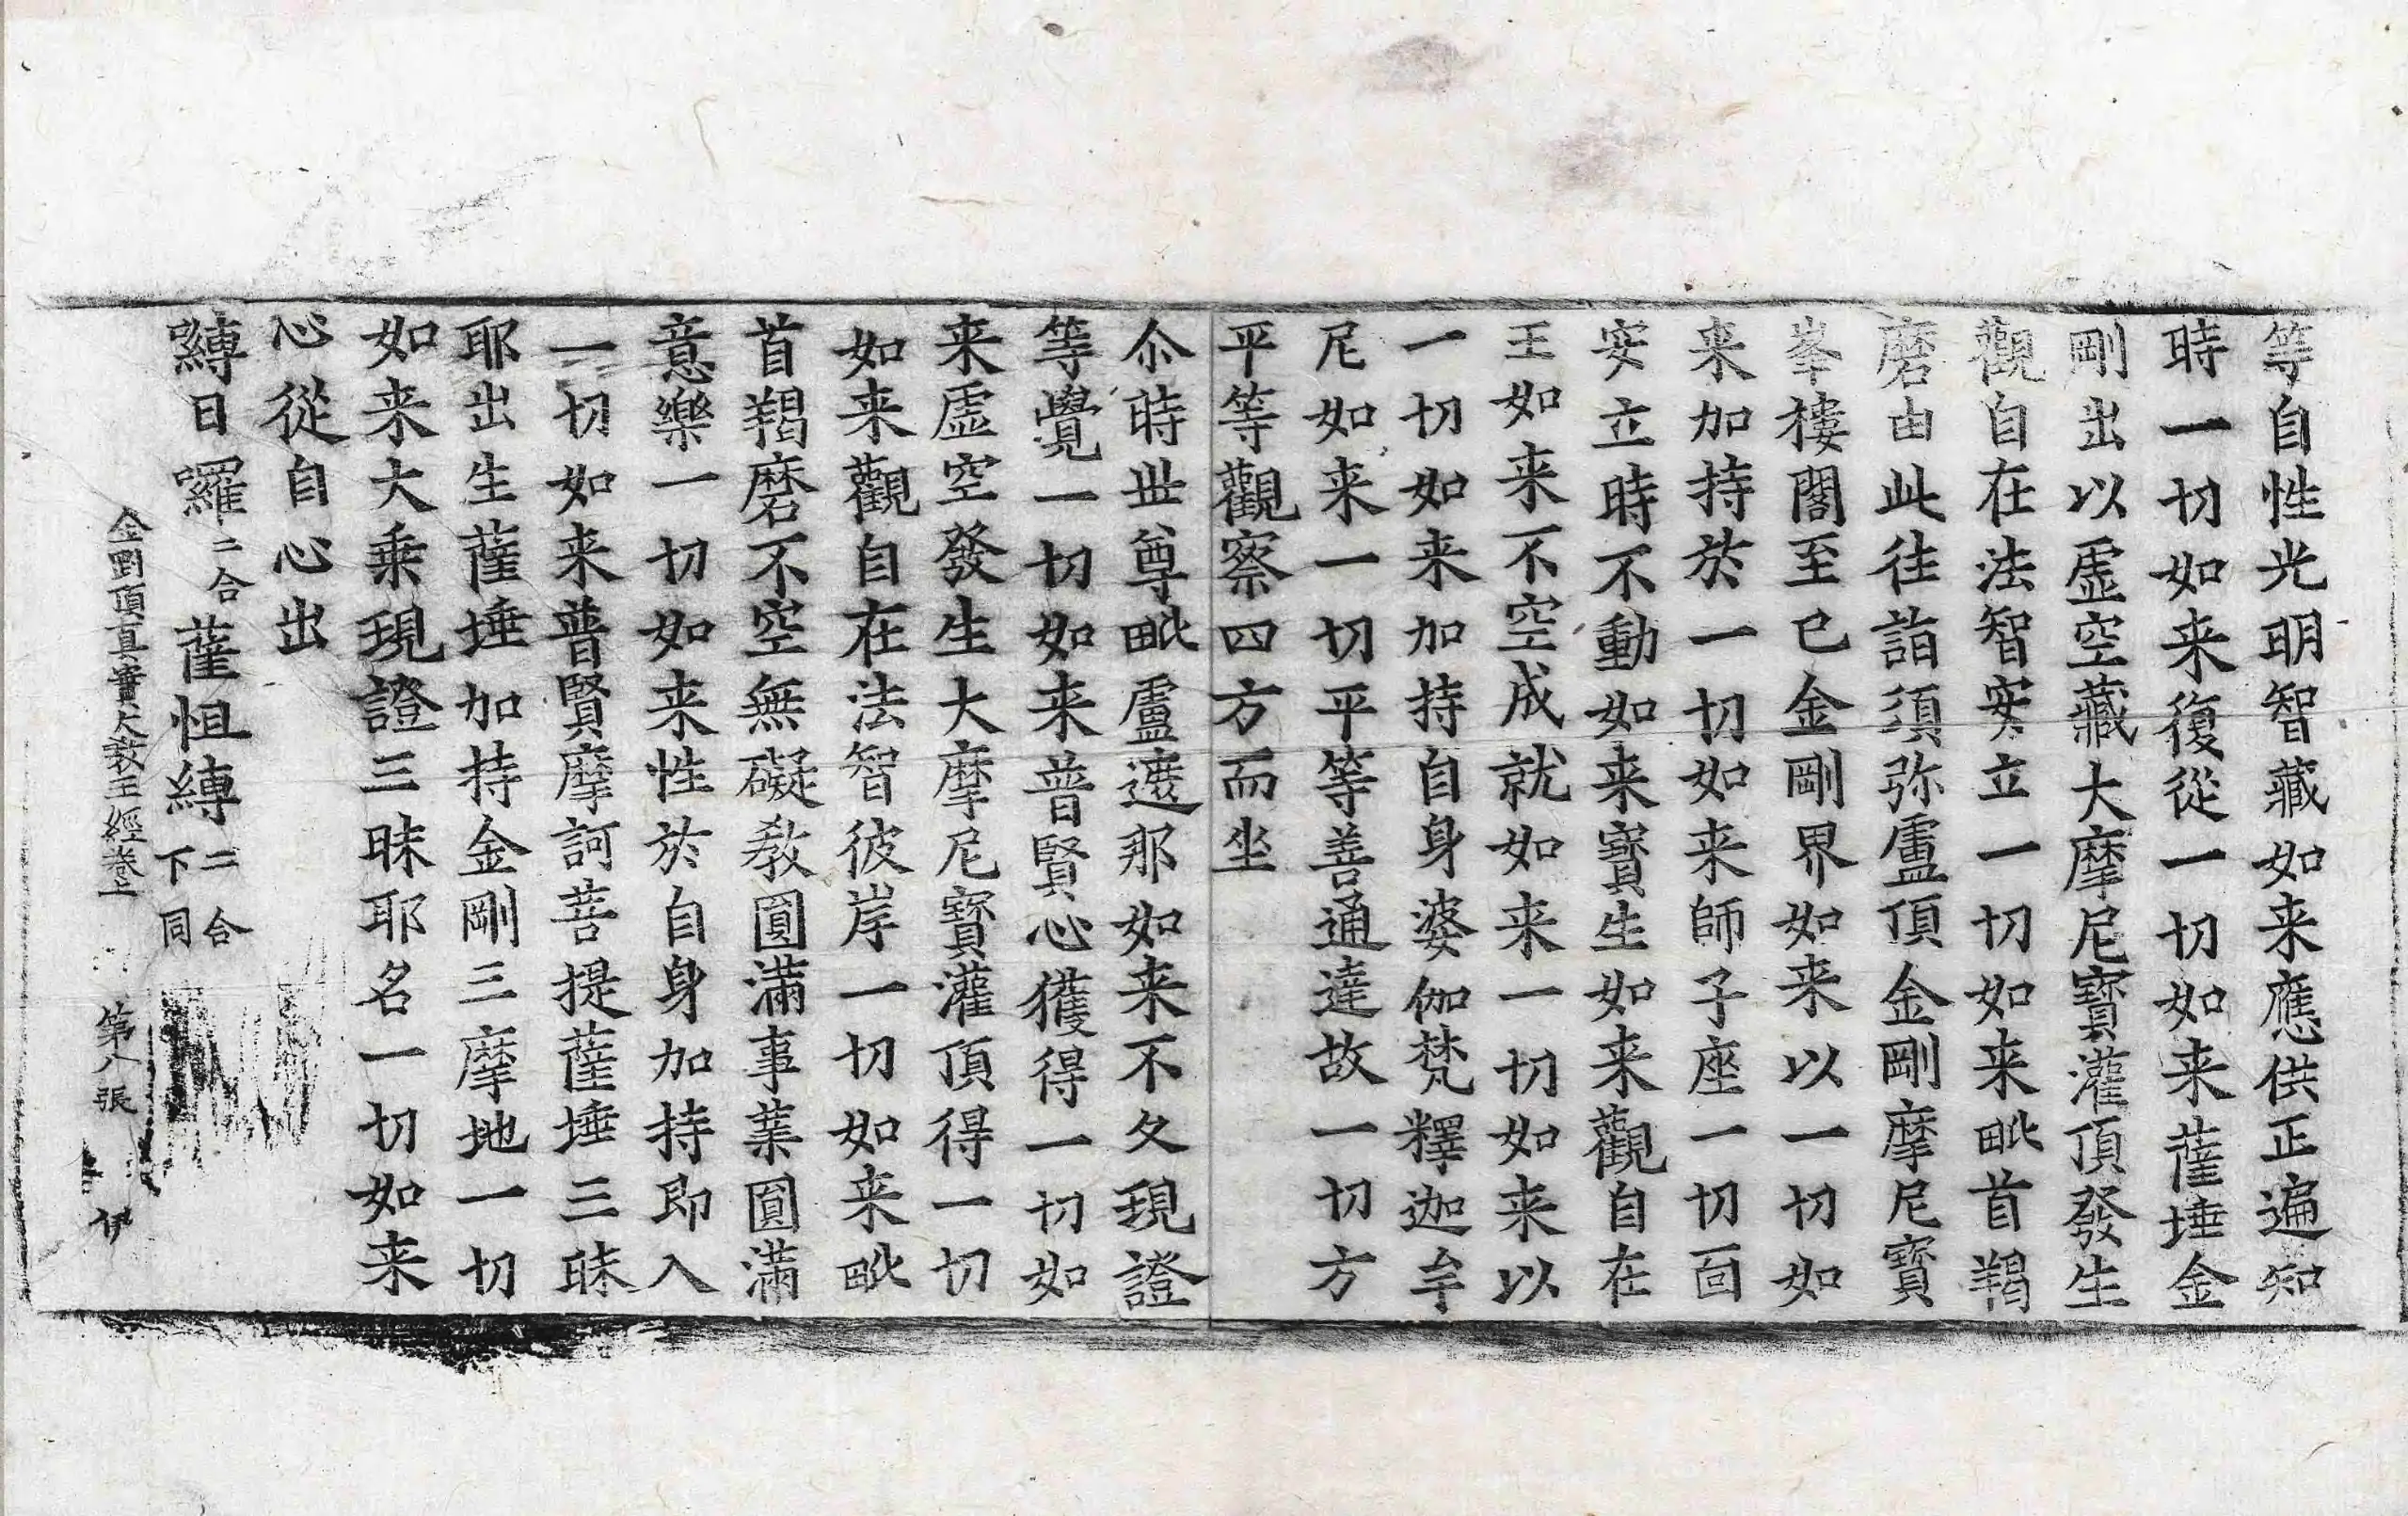 等自性光明智藏如来應供正遍知
時一切如来復從一切如来薩埵金
剛出以虛空藏大摩尼寶灌頂發生
觀自在法智安立一切如来毗首羯
磨由此往詣須弥盧頂金剛摩尼寶
峯樓閣至已金剛界如来以一切如
来加持於一切如来師子座一切面
安立時不動如来寶生如来觀自在
王如来不空成就如来一切如来以
一切如来加持自身婆伽梵釋迦牟
尼如来一切平等善通達故一切方
平等觀察四方而坐
尒時世尊毗盧遮那如来不久現證
等覺一切如来普賢心獲得一切如
来虛空發生大摩尼寶灌頂得一切
如来觀自在法智彼岸一切如来毗
首羯磨不空無礙教圓滿事業圓滿
意樂一切如来性於自身加持即入
一切如来普賢摩訶菩提薩埵三昧
耶出生薩埵加持金剛三摩地一切
如来大乘現證三昧耶名一切如来
心從自心出
嚩日囉二合薩怛嚩二合下同
金剛頂真實大教王經卷上 第八張 伊